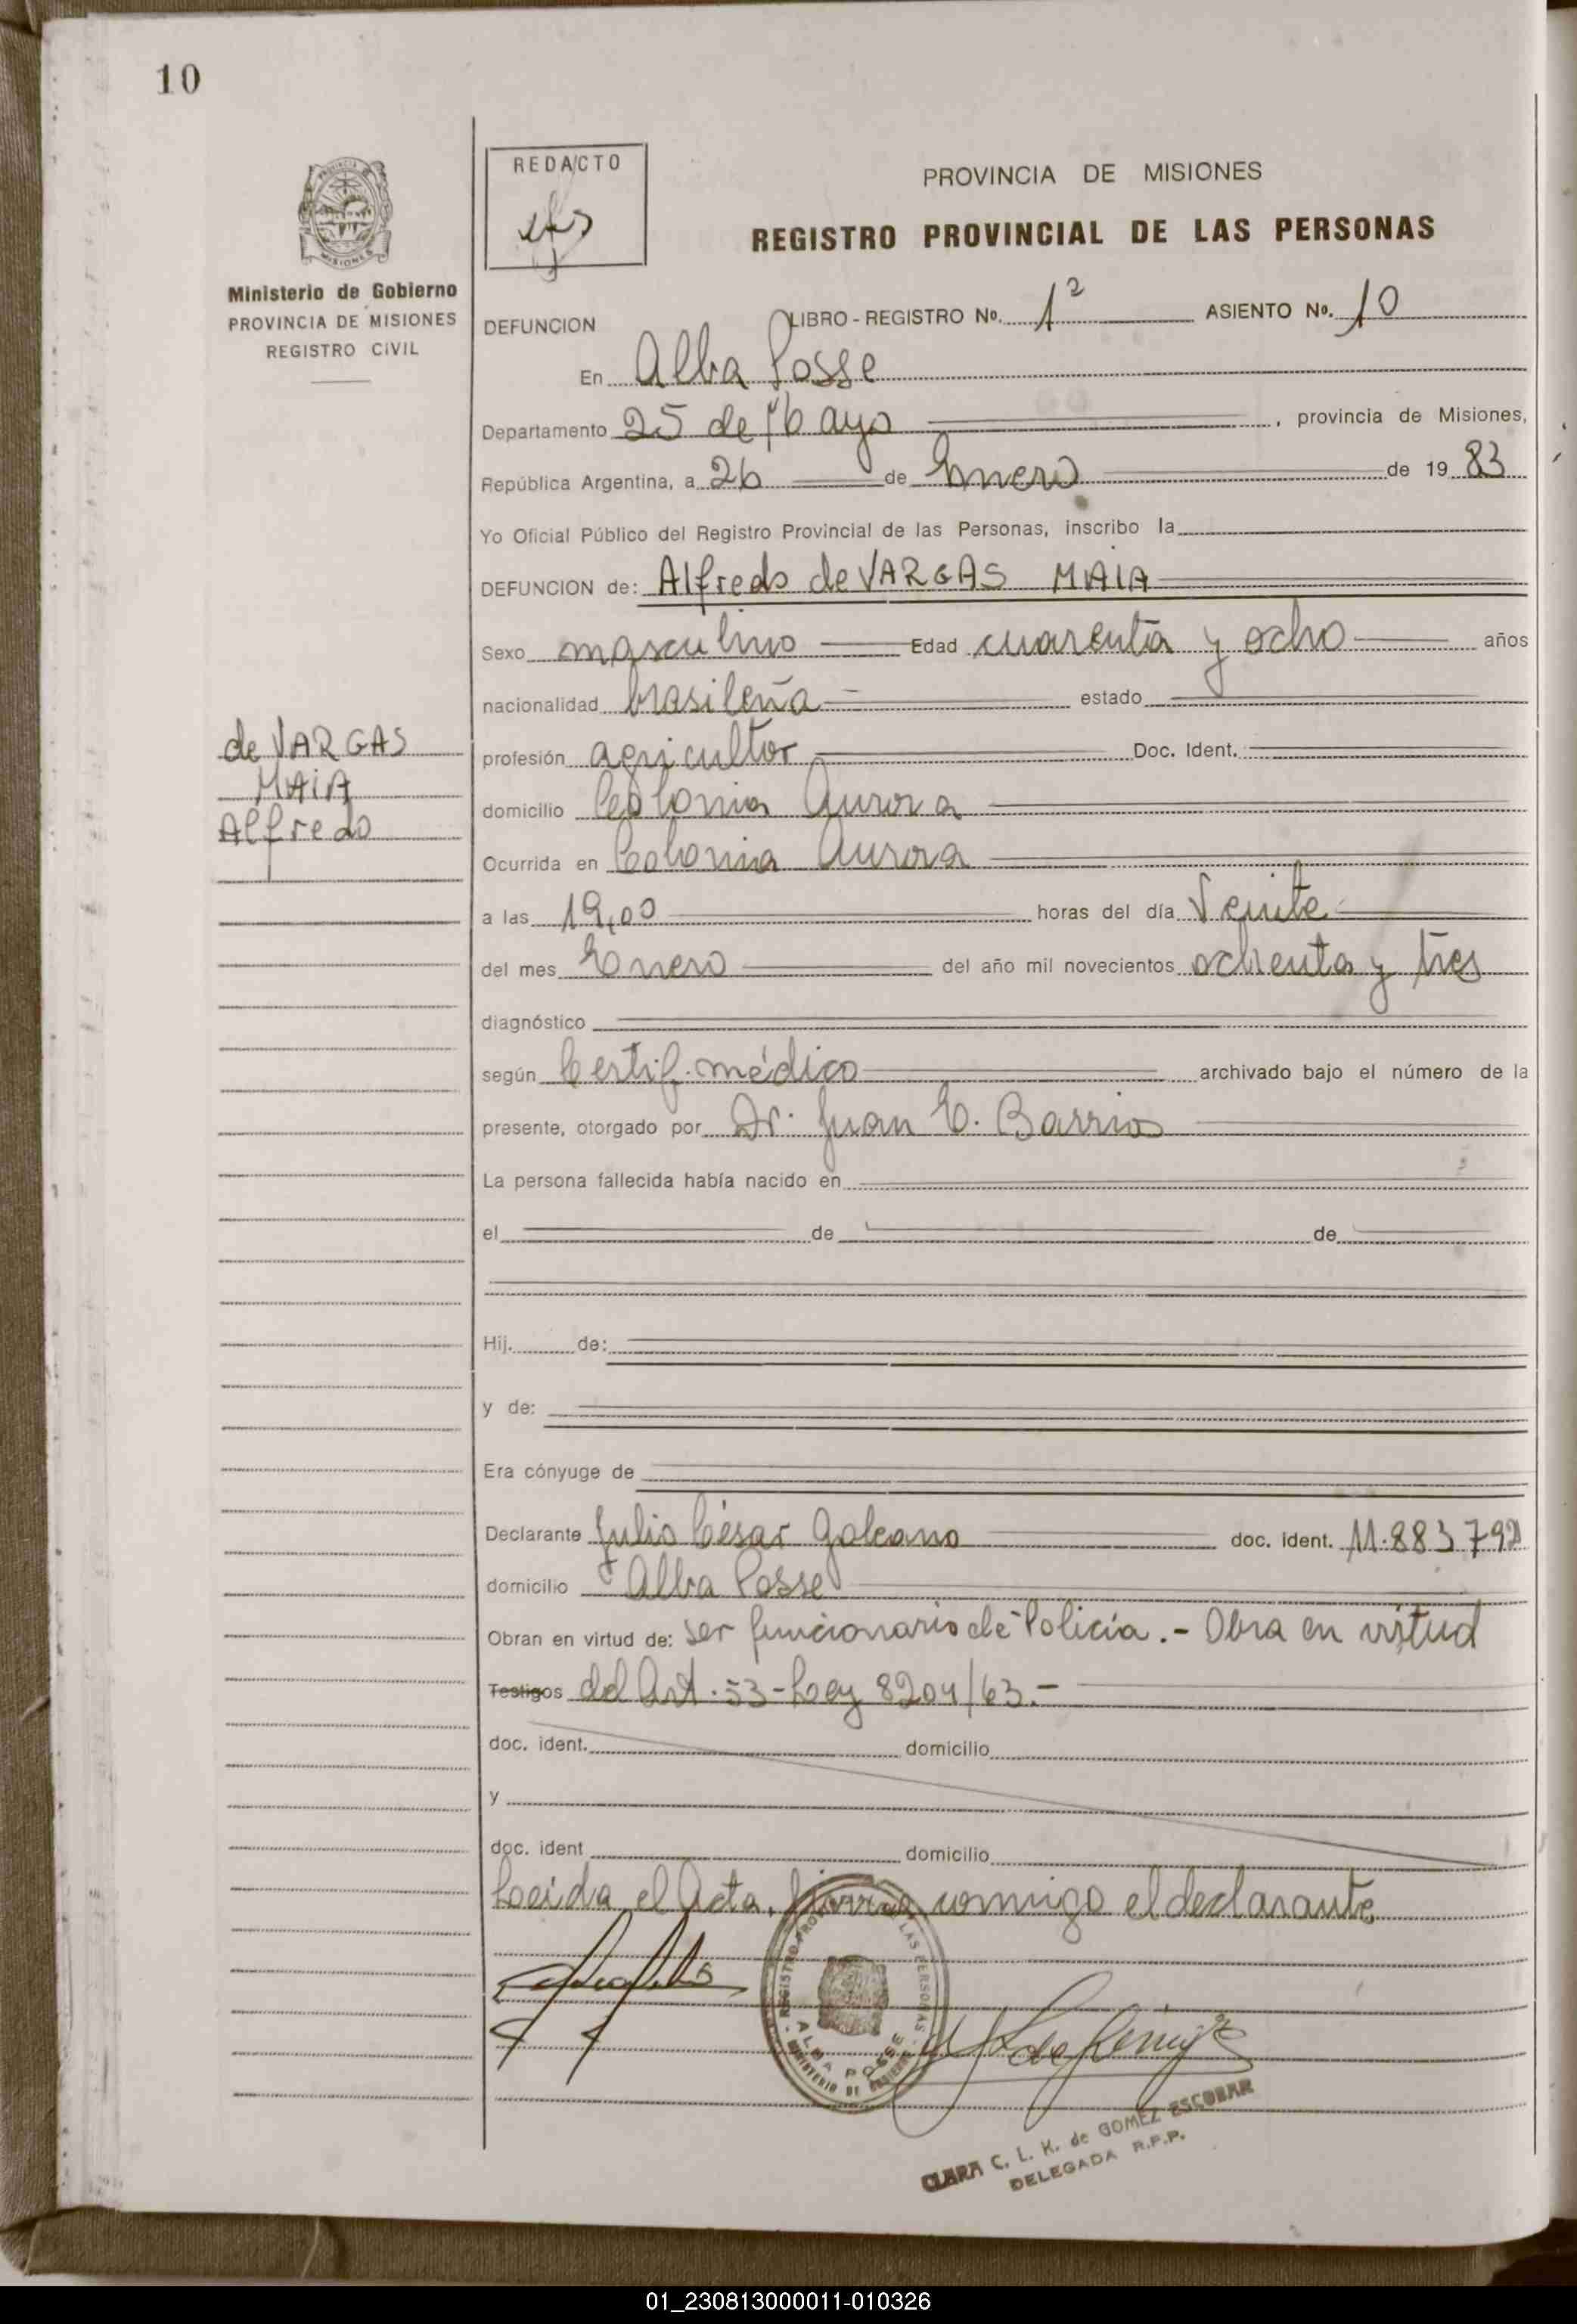 10
REDACTO
PROVINCIA DE MISIONES
REGISTRO PROVINCIAL DE LAS PERSONAS
Ministerio de Gobierno
PROVINCIA DE MISIONES
REGISTRO CIVIL
DEFUNCION LIBRO - REGISTRO No. 1º ASIENTO No. 10
En Alba Posse
Departamento 25 de Mayo , provincia de Misiones,
República Argentina, a 26 de Enero de 19 83
Yo Oficial Público del Registro Provincial de las Personas, inscribo la
DEFUNCION de: Alfredo de VARGAS MAIA
Sexo masculino Edad cuarenta y ocho años
nacionalidad brasileña estado
de VARGAS
MAIA
Alfredo
profesión agricultor Doc. Ident.
domicilio Colonia Aurora
Ocurrida en Colonia Aurora
a las 19,00 horas del día Veinte
del mes Enero del año mil novecientos ochenta y tres
diagnóstico
según Certif. médico archivado bajo el número de la
presente, otorgado por Dr. Juan E. Barrios
La persona fallecida había nacido en
el de de
Hij. de:
y de:
Era cónyuge de
Declarante Julio César Galeano doc. ident. 11.883.792
domicilio Alba Posse
Obran en virtud de: ser funcionario de Policía.- Obra en virtud
Testigos del Art. 53-Ley 8204/63.-
doc. ident. domicilio
y
doc. ident domicilio
Leida el Acta, firma conmigo el declarante
REGISTRO PROVINCIAL DE LAS PERSONAS
ALBA POSSE
MINISTERIO DE GOBIERNO
CLARA C. L. K. de GOMEZ ESCOBAR
DELEGADA R.P.P.
01_230813000011-010326